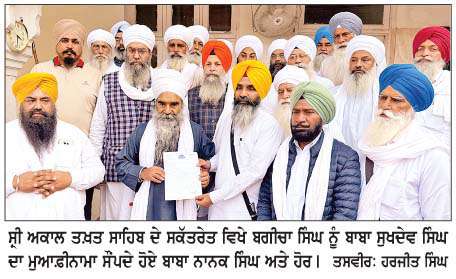 ਸ੍ਰੀ ਅਕਾਲ ਤਖ਼ਤ ਸਾਹਿਬ ਦੇ ਸਕੱਤਰੇਤ ਵਿਖੇ ਬਗੀਚਾ ਸਿੰਘ ਨੂੰ ਬਾਬਾ ਸੁਖਦੇਵ ਸਿੰਘ
ਦਾ ਮੁਆਫ਼ੀਨਾਮਾ ਸੌਂਪਦੇ ਹੋਏ ਬਾਬਾ ਨਾਨਕ ਸਿੰਘ ਅਤੇ ਹੋਰ। ਤਸਵੀਰ: ਹਰਜੀਤ ਸਿੰਘ